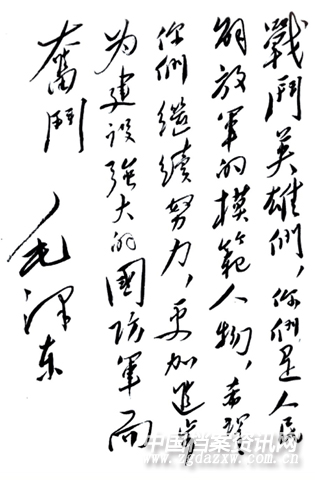 戰鬥英雄們，你們是人民
解放軍的模範人物，希望
你們繼續努力，更加進步，
为建设强大的國防軍而
奮鬥
毛泽东
中国档案资讯网
www.zgdazxw.com.cn